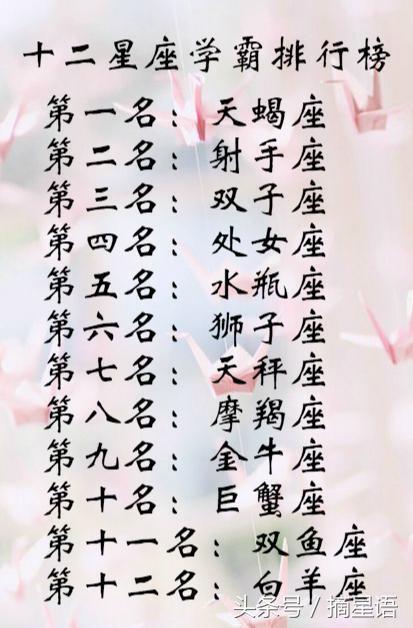 十二星座学霸排行榜
第一名：天蝎座
第二名：射手座
第三名：双子座
第四名：处女座
第五名：水瓶座
第六名：狮子座
第七名：天秤座
第八名：摩羯座
第九名：金牛座
第十名：巨蟹座
第十一名：双鱼座
第十二名：白羊座
头条号 / 摘星语